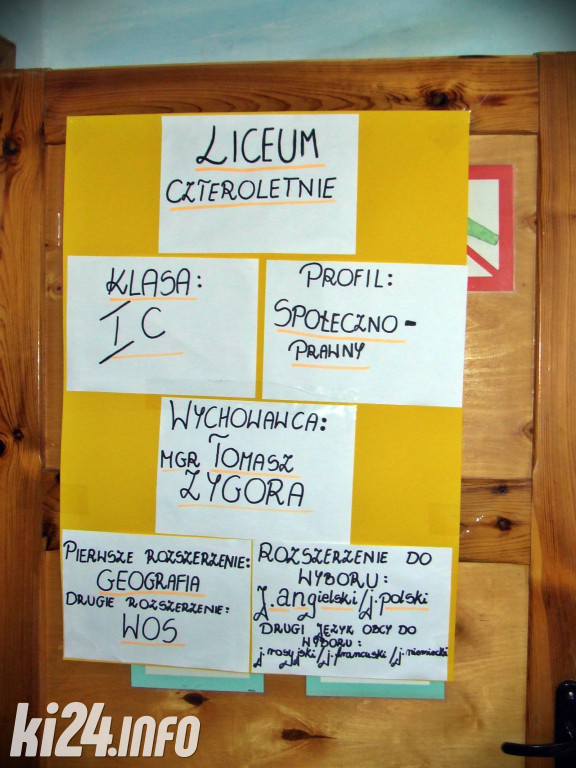 LICEUM
CZTEROLETNIE
KLASA:
I C
PROFIL:
SPOŁECZNO-
PRAWNY
WYCHOWAWCA:
MGR TOMASZ
ZYGORA
PIERWSZE ROZSZERZENIE:
GEOGRAFIA
DRUGIE ROZSZERZENIE:
WOS
ROZSZERZENIE DO
WYBORU:
J.angielski/j.polski
DRUGI JĘZYK OBCY DO
WYBORU:
j.rosyjski/j.francuski/j.niemiecki
ki24.info